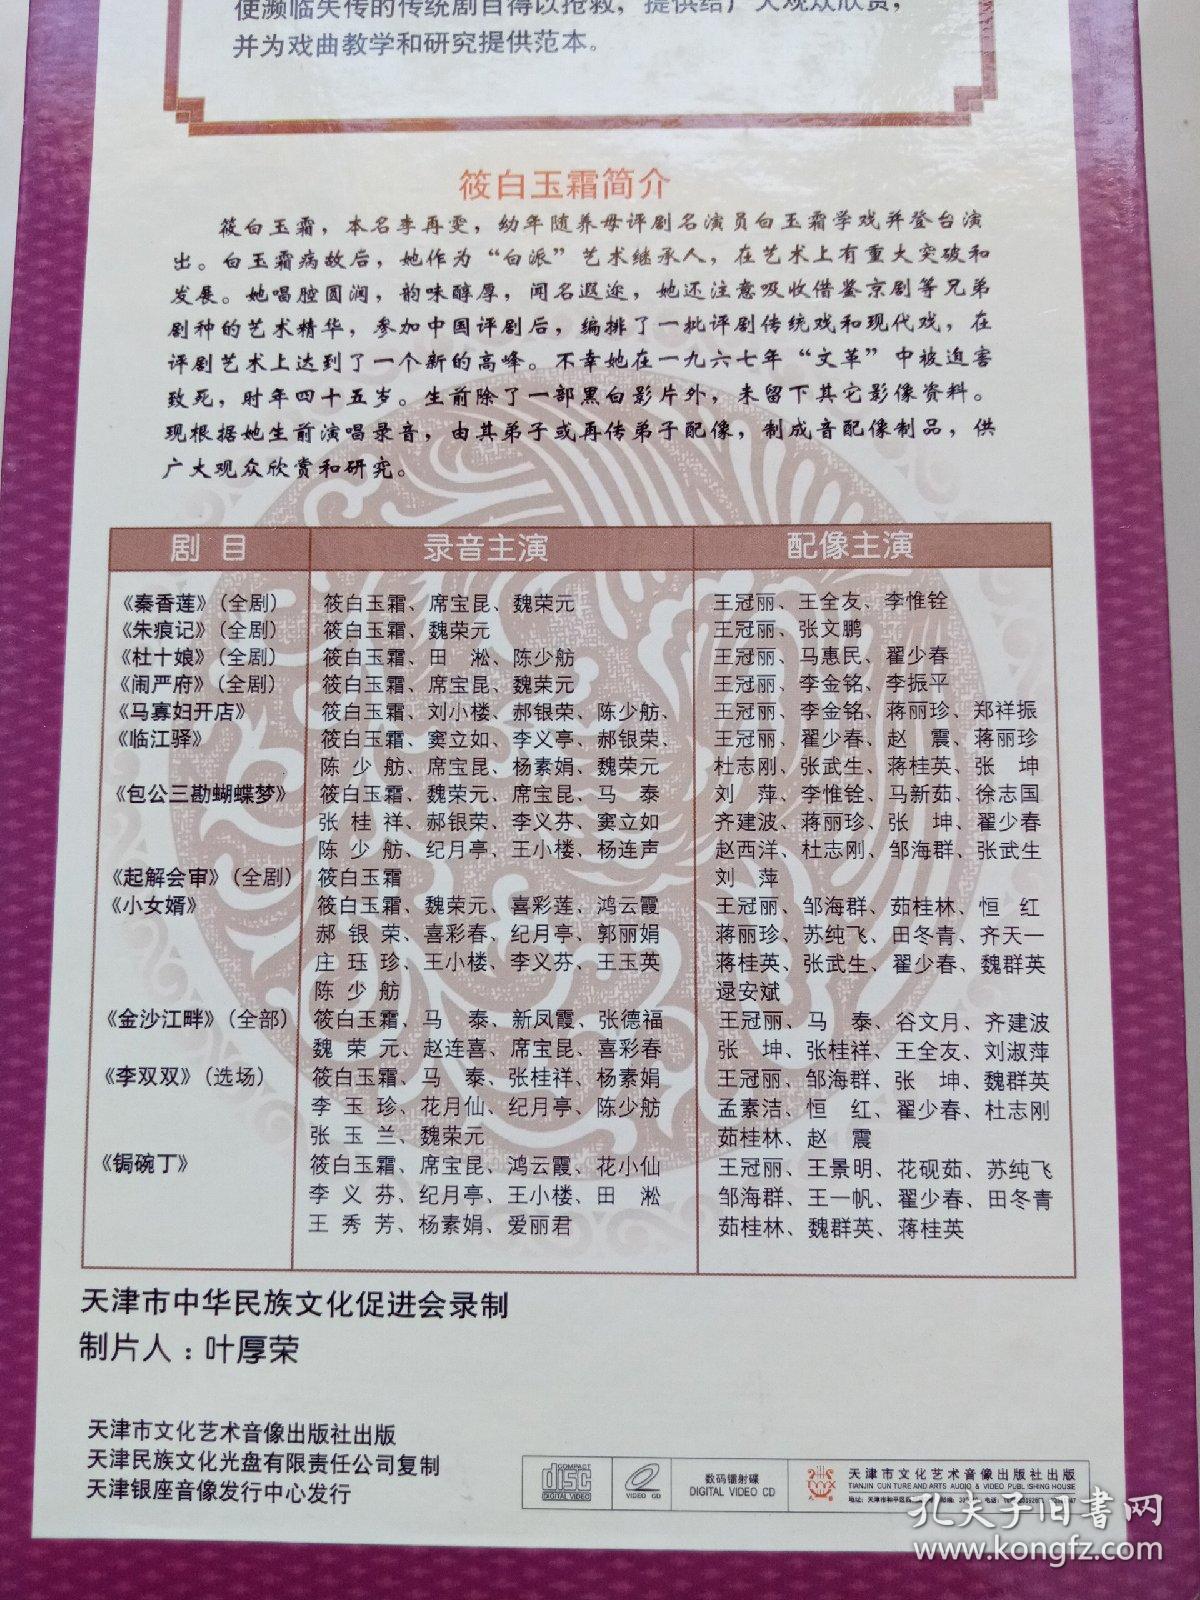 使濒临失传的传统剧目得以抢救，提供给广大观众欣赏，
并为戏曲教学和研究提供范本。
筱白玉霜简介
筱白玉霜，本名李再雯，幼年随养母评剧名演员白玉霜学戏并登台演
出。白玉霜病故后，她作为“白派”艺术继承人，在艺术上有重大突破和
发展。她唱腔圆润，韵味醇厚，闻名遐迩，她还注意吸收借鉴京剧等兄弟
剧种的艺术精华，参加中国评剧后，编排了一批评剧传统戏和现代戏，在
评剧艺术上达到了一个新的高峰。不幸她在一九六七年“文革”中被迫害
致死，时年四十五岁。生前除了一部黑白影片外，未留下其它影像资料。
现根据她生前演唱录音，由其弟子或再传弟子配像，制成音配像制品，供
广大观众欣赏和研究。
剧 目 录音主演 配像主演
《秦香莲》（全剧） 筱白玉霜、席宝昆、魏荣元 王冠丽、王全友、李惟铨
《朱痕记》（全剧） 筱白玉霜、魏荣元 王冠丽、张文鹏
《杜十娘》（全剧） 筱白玉霜、田 淞、陈少舫 王冠丽、马惠民、翟少春
《闹严府》（全剧） 筱白玉霜、席宝昆、魏荣元 王冠丽、李金铭、李振平
《马寡妇开店》 筱白玉霜、刘小楼、郝银荣、陈少舫、 王冠丽、李金铭、蒋丽珍、郑祥振
《临江驿》 筱白玉霜、窦立如、李义亭、郝银荣、 王冠丽、翟少春、赵 震、蒋丽珍
陈 少 舫、席宝昆、杨素娟、魏荣元 杜志刚、张武生、蒋桂英、张 坤
《包公三勘蝴蝶梦》 筱白玉霜、魏荣元、席宝昆、马 泰 刘 萍、李惟铨、马新茹、徐志国
张 桂 祥、郝银荣、李义芬、窦立如 齐建波、蒋丽珍、张 坤、翟少春
陈 少 舫、纪月亭、王小楼、杨连声 赵西洋、杜志刚、邹海群、张武生
《起解会审》（全剧） 筱白玉霜 刘 萍
《小女婿》 筱白玉霜、魏荣元、喜彩莲、鸿云霞 王冠丽、邹海群、茹桂林、恒 红
郝 银 荣、喜彩春、纪月亭、郭丽娟 蒋丽珍、苏纯飞、田冬青、齐天一
庄 珏 珍、王小楼、李义芬、王玉英 蒋桂英、张武生、翟少春、魏群英
陈 少 舫 逯安斌
《金沙江畔》（全部） 筱白玉霜、马 泰、新凤霞、张德福 王冠丽、马 泰、谷文月、齐建波
魏 荣 元、赵连喜、席宝昆、喜彩春 张 坤、张桂祥、王全友、刘淑萍
《李双双》（选场） 筱白玉霜、马 泰、张桂祥、杨素娟 王冠丽、邹海群、张 坤、魏群英
李 玉 珍、花月仙、纪月亭、陈少舫 孟素洁、恒 红、翟少春、杜志刚
张 玉 兰、魏荣元 茹桂林、赵 震
《锔碗丁》 筱白玉霜、席宝昆、鸿云霞、花小仙 王冠丽、王景明、花砚茹、苏纯飞
李 义 芬、纪月亭、王小楼、田 淞 邹海群、王一帆、翟少春、田冬青
王 秀 芳、杨素娟、爱丽君 茹桂林、魏群英、蒋桂英
天津市中华民族文化促进会录制
制片人：叶厚荣
天津市文化艺术音像出版社出版
天津民族文化光盘有限责任公司复制
天津银座音像发行中心发行
COMPACT disc DIGITAL VIDEO
VIDEO CD
数码镭射碟
DIGITAL VIDEO CD
天津市文化艺术音像出版社出版
TIANJIN CUNTURE AND ARTS AUDIO & VIDEO PUBLISHING HOUSE
地址：天津市和平区
孔夫子旧书网
www.kongfz.com